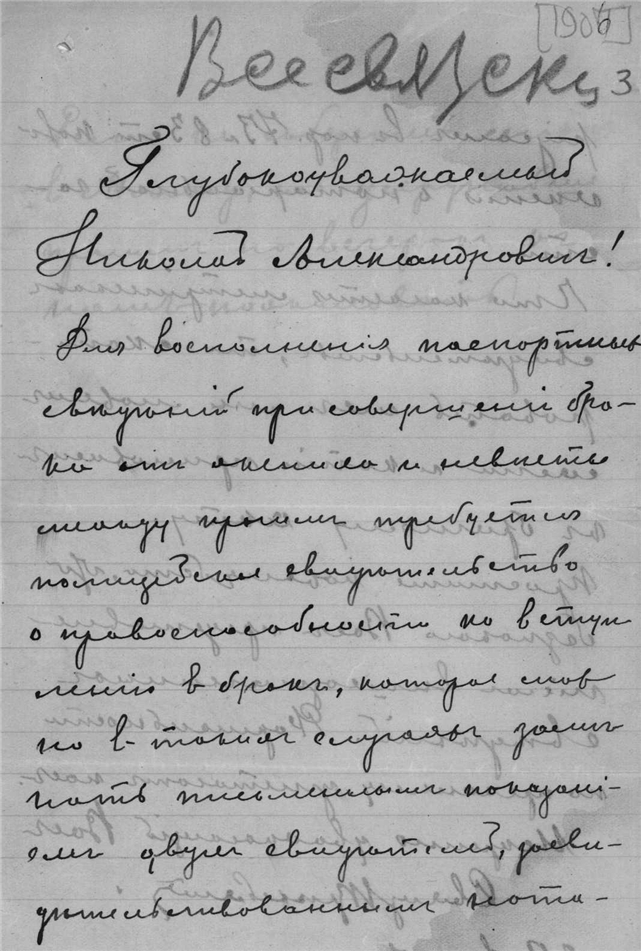 [1906]
Всесвятск 3
Глубокоуважаемый
Николай Александрович!
Для восполненія паспортных
сведѣній при совершеніи бра-
ка от жениха и невесты
между прочим требуется
полицейское свидѣтельство
о правоспособности ко вступ
ленію в брак, которое мож
но в таких случаях заме
нить письменным показані-
ем двух свидѣтелей, засви-
дѣтельствованным нота-